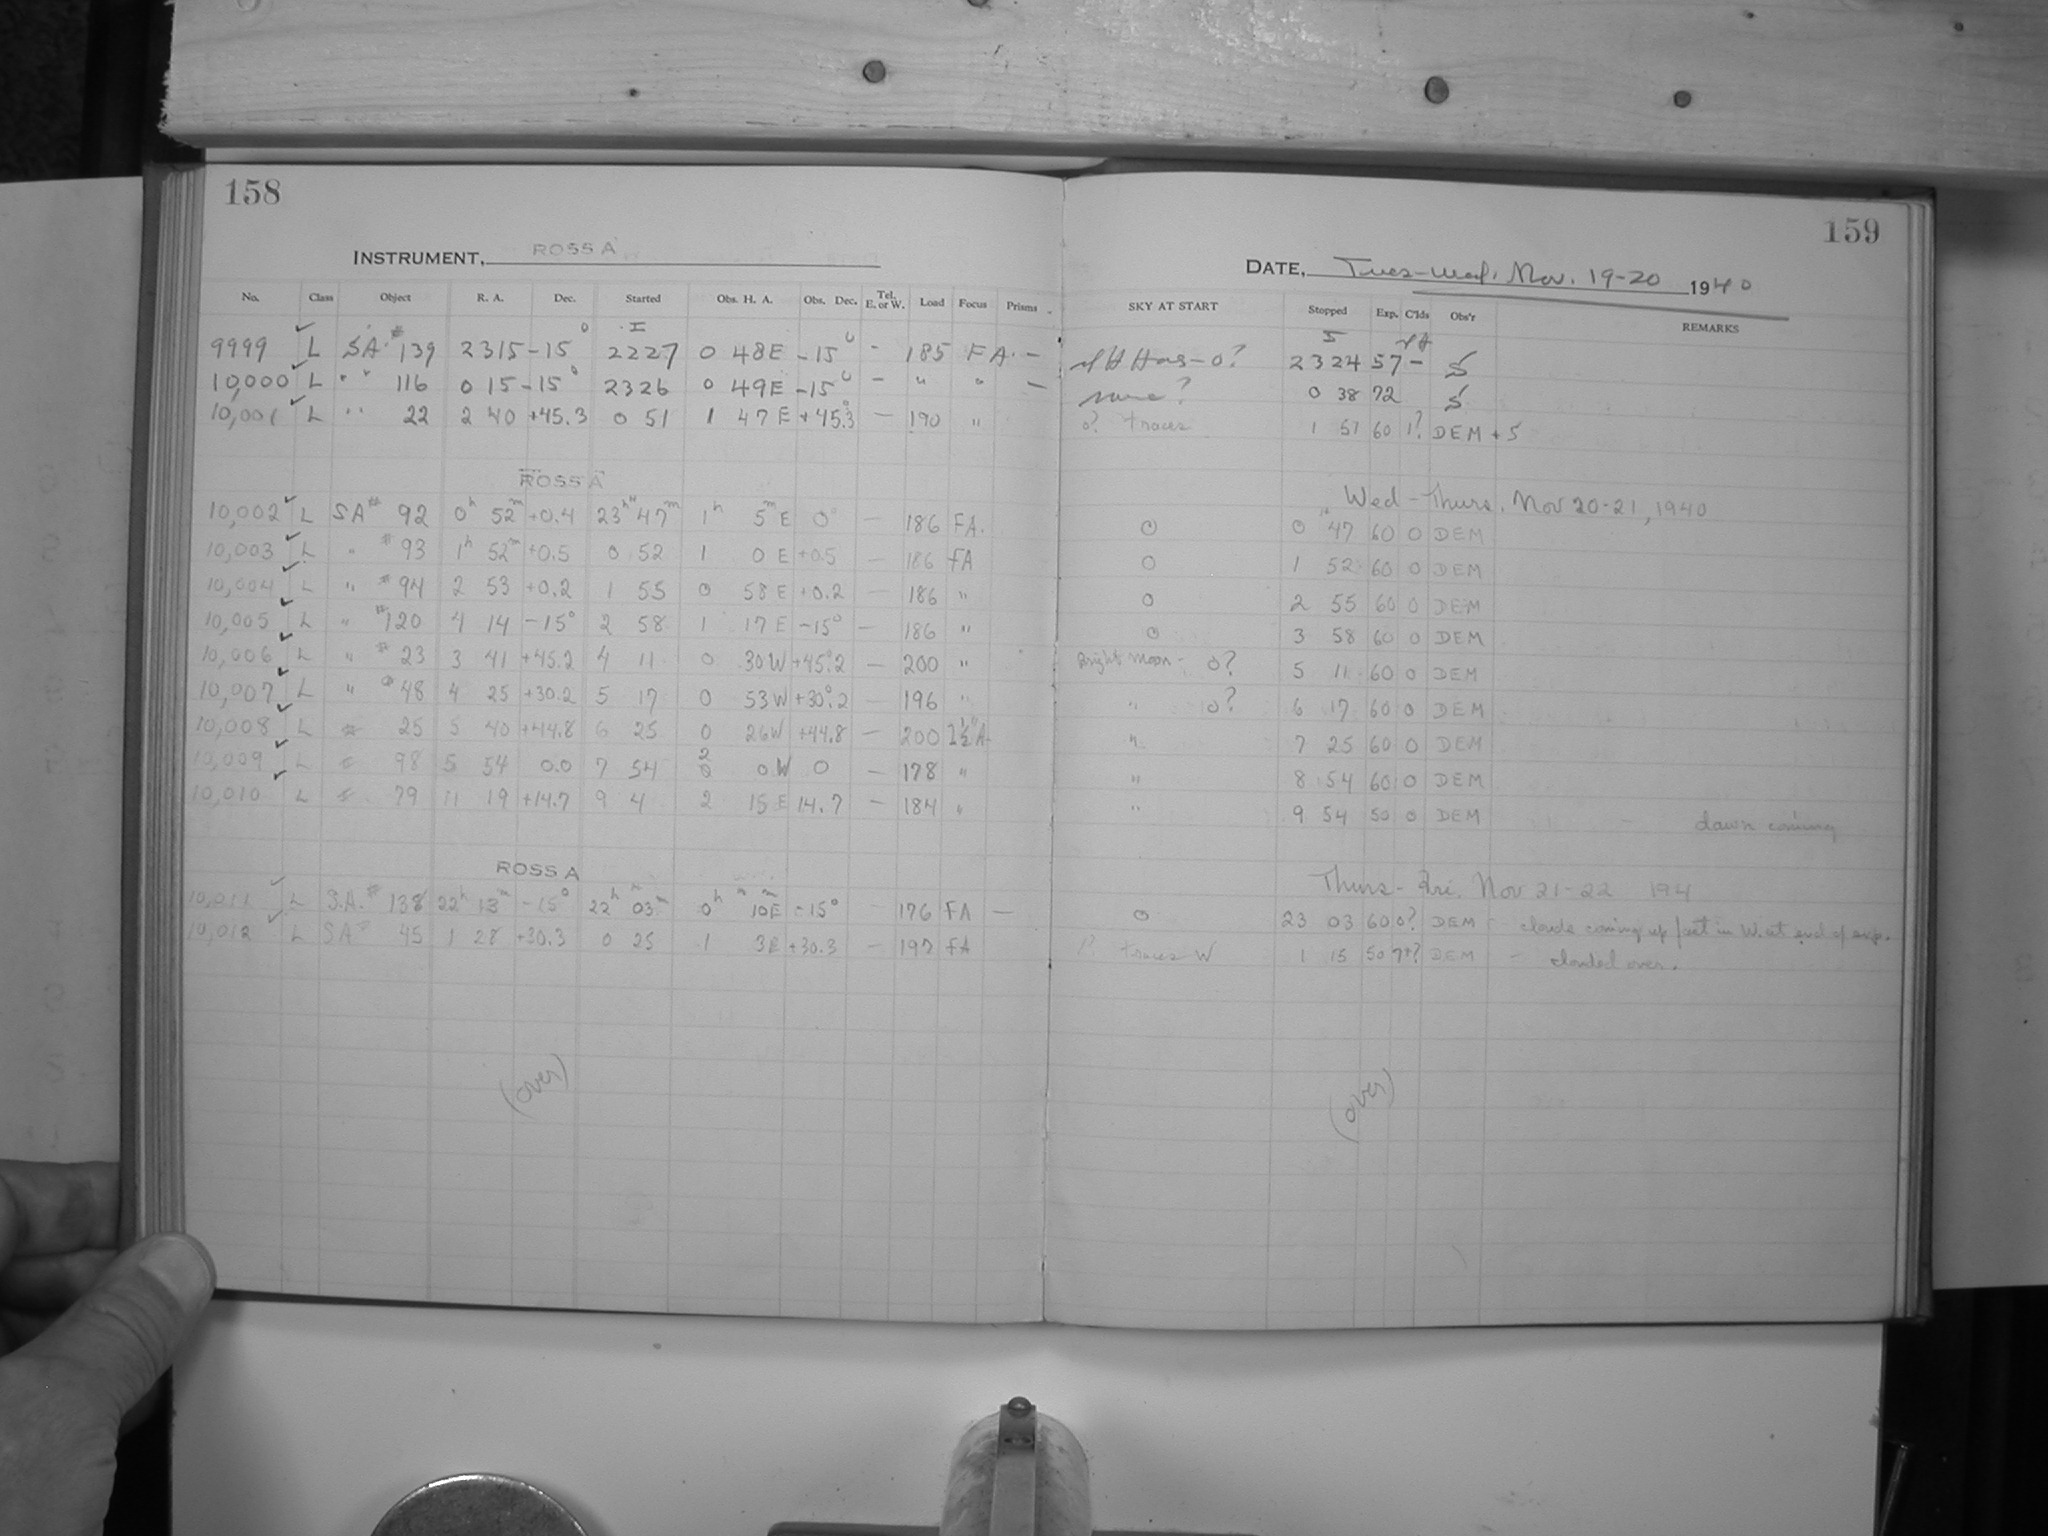 158
INSTRUMENT, ROSS A
No. Class Object R. A. Dec. Started Obs. H. A. Obs. Dec. Tel. E. or W. Load Focus Prisms
9999 L SA # 139 23 15 -15° 22 27 0 48E -15° - 185 FA -
10,000 L " " 116 0 15 -15° 23 26 0 49E -15° - " " -
10,001 L " 22 2 40 +45.3 0 51 1 47 E +45.3 - 190 "
ROSS A
10,002 L SA # 92 0h 52m +0.4 23h 47m 1h 5m E 0° - 186 FA.
10,003 L " # 93 1h 52m +0.5 0 52 1 0 E +0.5 - 186 FA
10,004 L " # 94 2 53 +0.2 1 55 0 58 E +0.2 - 186 "
10,005 L " # 120 4 14 -15° 2 58 1 17 E -15° - 186 "
10,006 L " # 23 3 41 +45.2 4 11 0 30 W +45°.2 - 200 "
10,007 L " # 48 4 25 +30.2 5 17 0 53 W +30°.2 - 196 "
10,008 L # 25 5 40 +44.8 6 25 0 26W +44.8 - 200 1½ A
10,009 L 98 5 54 0.0 7 54 2 0 W 0 - 178 "
10,010 L 79 11 19 +14.7 9 4 2 15 E 14.7 - 184 "
ROSS A
10,011 L S.A. # 138 22h 13m -15° 22h 03m 0h 10E -15° - 176 FA -
10,012 L SA # 45 1 28 +30.3 0 25 1 3E +30.3 - 192 FA
(over)
159
DATE, Tues-Wed. Nov. 19-20 1940
SKY AT START Stopped Exp. C'lds Obs'r REMARKS
0? 23 24 57 - S
same? 0 38 72 S
0? traces 1 51 60 1? DEM + S
Wed - Thurs. Nov 20-21, 1940
0 0 47 60 0 DEM
0 1 52 60 0 DEM
0 2 55 60 0 DEM
0 3 58 60 0 DEM
Bright moon - 0? 5 11 60 0 DEM
" 0? 6 17 60 0 DEM
" 7 25 60 0 DEM
" 8 54 60 0 DEM
" 9 54 50 0 DEM dawn coming
Thurs - Fri. Nov 21-22 194
0 23 03 60 0? DEM - clouds coming up fast in W. at end of exp.
1? traces W 1 15 50 7+? DEM - clouded over.
(over)